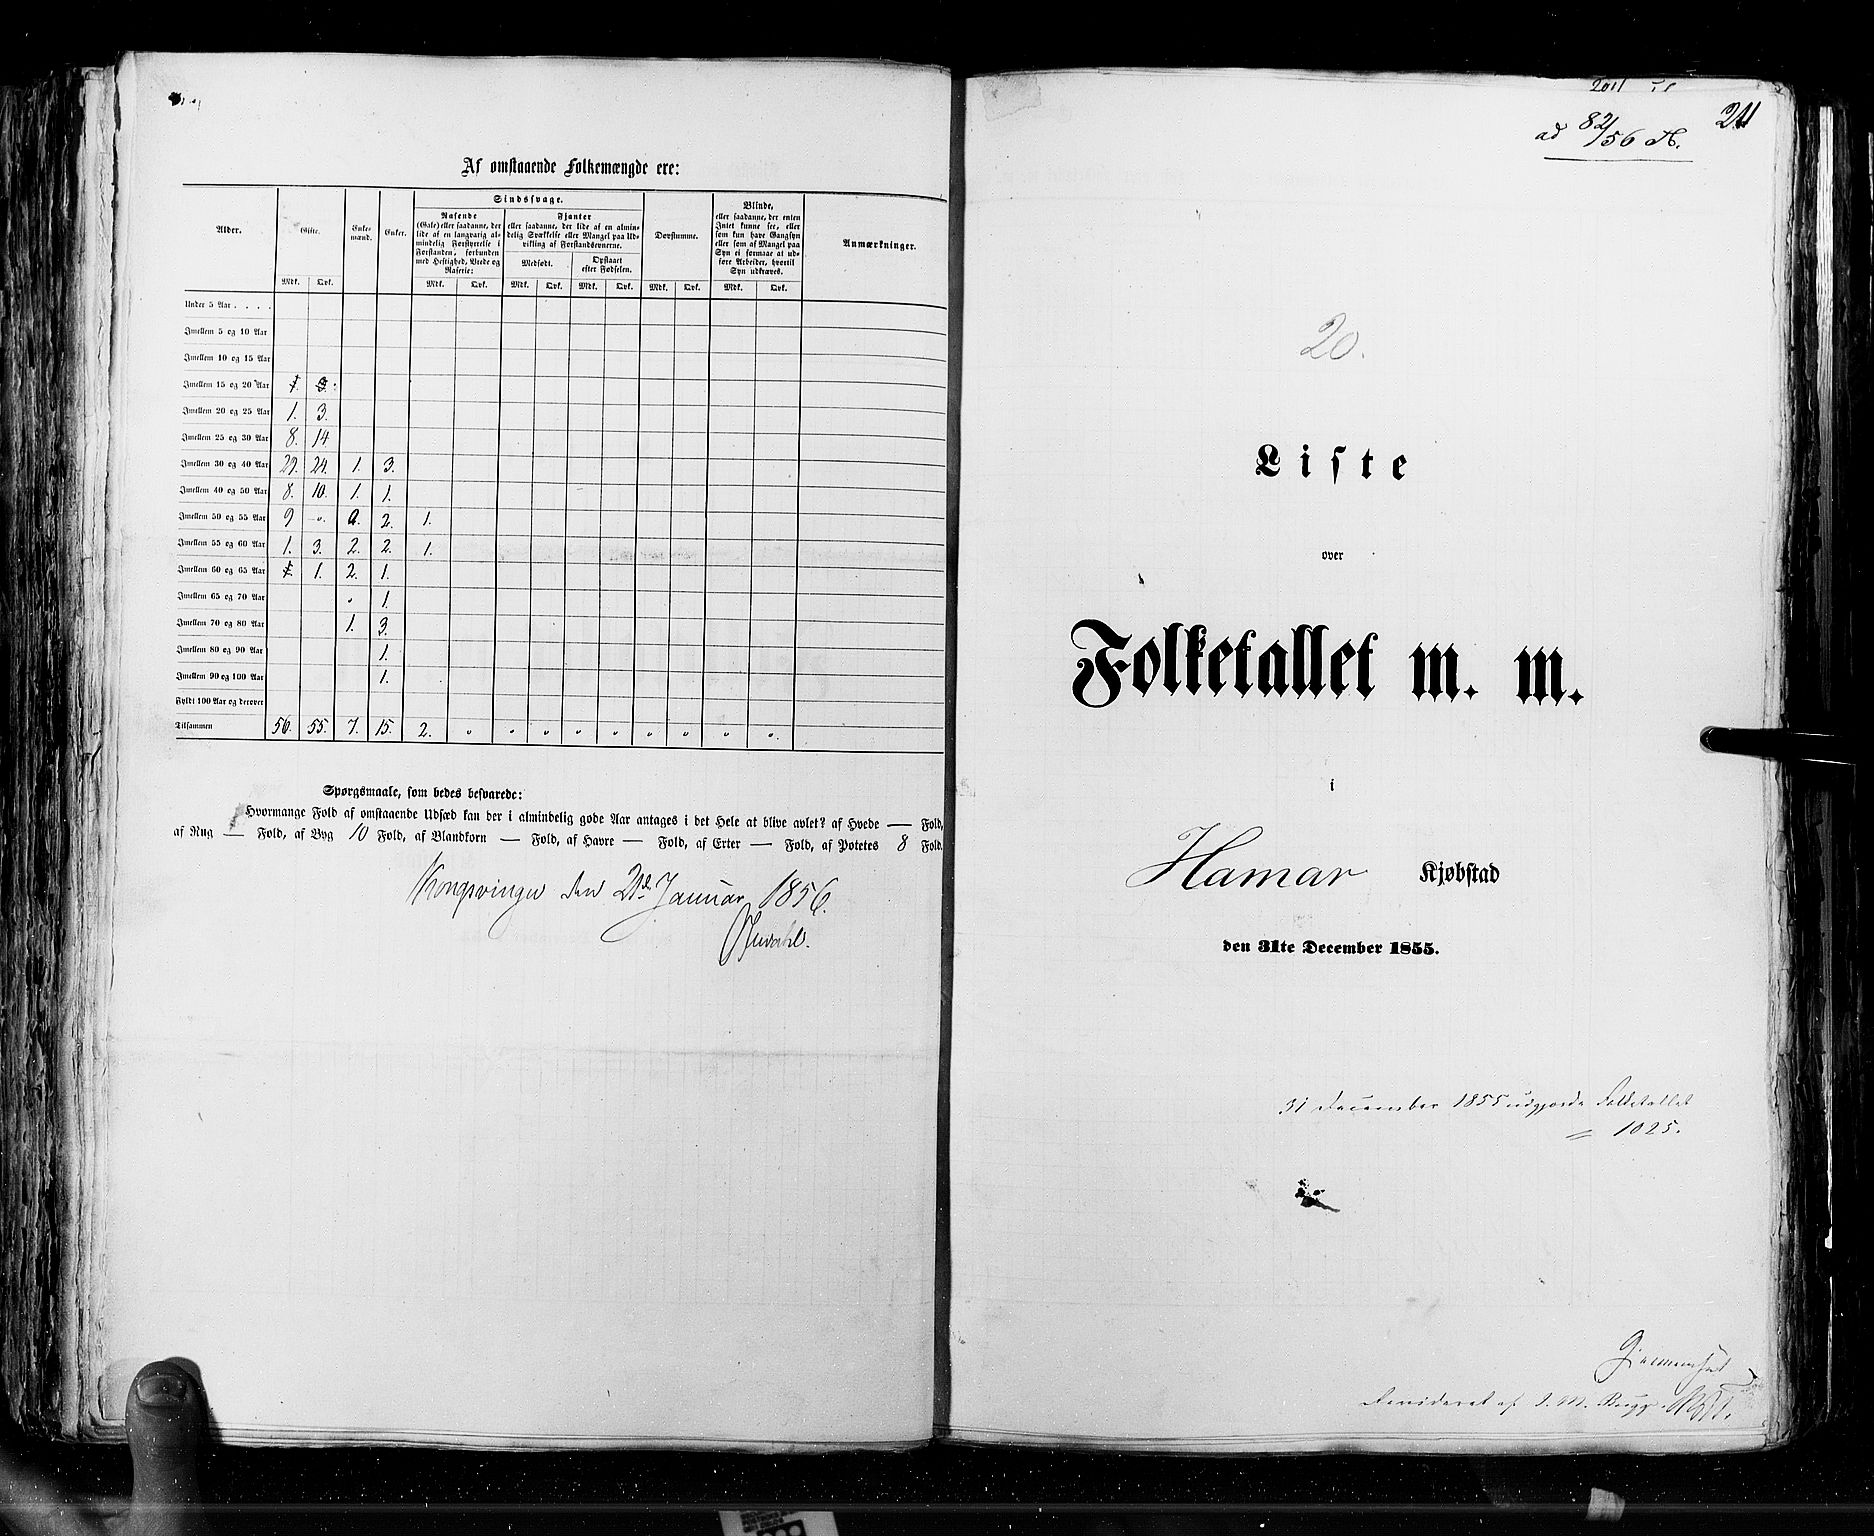 Af omstaaende Folkemængde ere:
Alder. Gifte. Enke-mænd. Enker. Sindssvage. Døvstumme. Blinde, Anmærkninger.
Rasende
(Gale) eller saadanne, der
lide af en langvarig al-
mindelig Forstyrrelse i
Forstanden, forbunden
med Heftighed, Vrede og
Raserie:
Fjanter
eller saadanne, der lide af en almin-
delig Svækkelse eller Mangel paa Ud-
vikling af Forstandsevnerne.
Medfødt. Opstaaet
efter Fødselen.
eller saadanne, der enten
Intet kunne see, eller
som kun have Gangsyn
eller som af Mangel paa
Syn ei formaae at ud-
føre Arbeider, hvortil
Syn udkræves.
Mdk. Qvk. Mdk. Qvk. Mdk. Qvk. Mdk. Qvk. Mdk. Qvk. Mdk. Qvk.
Under 5 Aar . . . .
Imellem 5 og 10 Aar
Imellem 10 og 15 Aar
Imellem 15 og 20 Aar
Imellem 20 og 25 Aar 1. 3.
Imellem 25 og 30 Aar 8. 14
Imellem 30 og 40 Aar 29. 24. 1. 3.
Imellem 40 og 50 Aar 8. 10. 1. 1.
Imellem 50 og 55 Aar 9 „ 2. 1.
Imellem 55 og 60 Aar 1. 3. 2. 2. 1.
Imellem 60 og 65 Aar 1. 2. 1.
Imellem 65 og 70 Aar „ 1.
Imellem 70 og 80 Aar 1. 3.
Imellem 80 og 90 Aar 1.
Imellem 90 og 100 Aar 1.
Fyldt 100 Aar og derover
Tilsammen 56. 55. 7. 15. 2. „ „ „ „ „ „ „ „ „
Spørgsmaale, som bedes besvarede:
Hvormange Fold af omstaaende Udsæd kan der i almindelig gode Aar antages i det Hele at blive avlet? af Hvede — Fold,
af Rug — Fold, af Byg 10 Fold, af Blandkorn — Fold, af Havre — Fold, af Erter — Fold, af Potetes 8 Fold.
Kongsvinger den 21de Januar 1856.
2011
211
ad 82/56 A.
20.
Liste
over
Folketallet m. m.
i
Hamar Kjøbstad
den 31te December 1855.
31 December 1855 udgjorde Folketallet
= 1025.
Revideret af J. M. Bugge